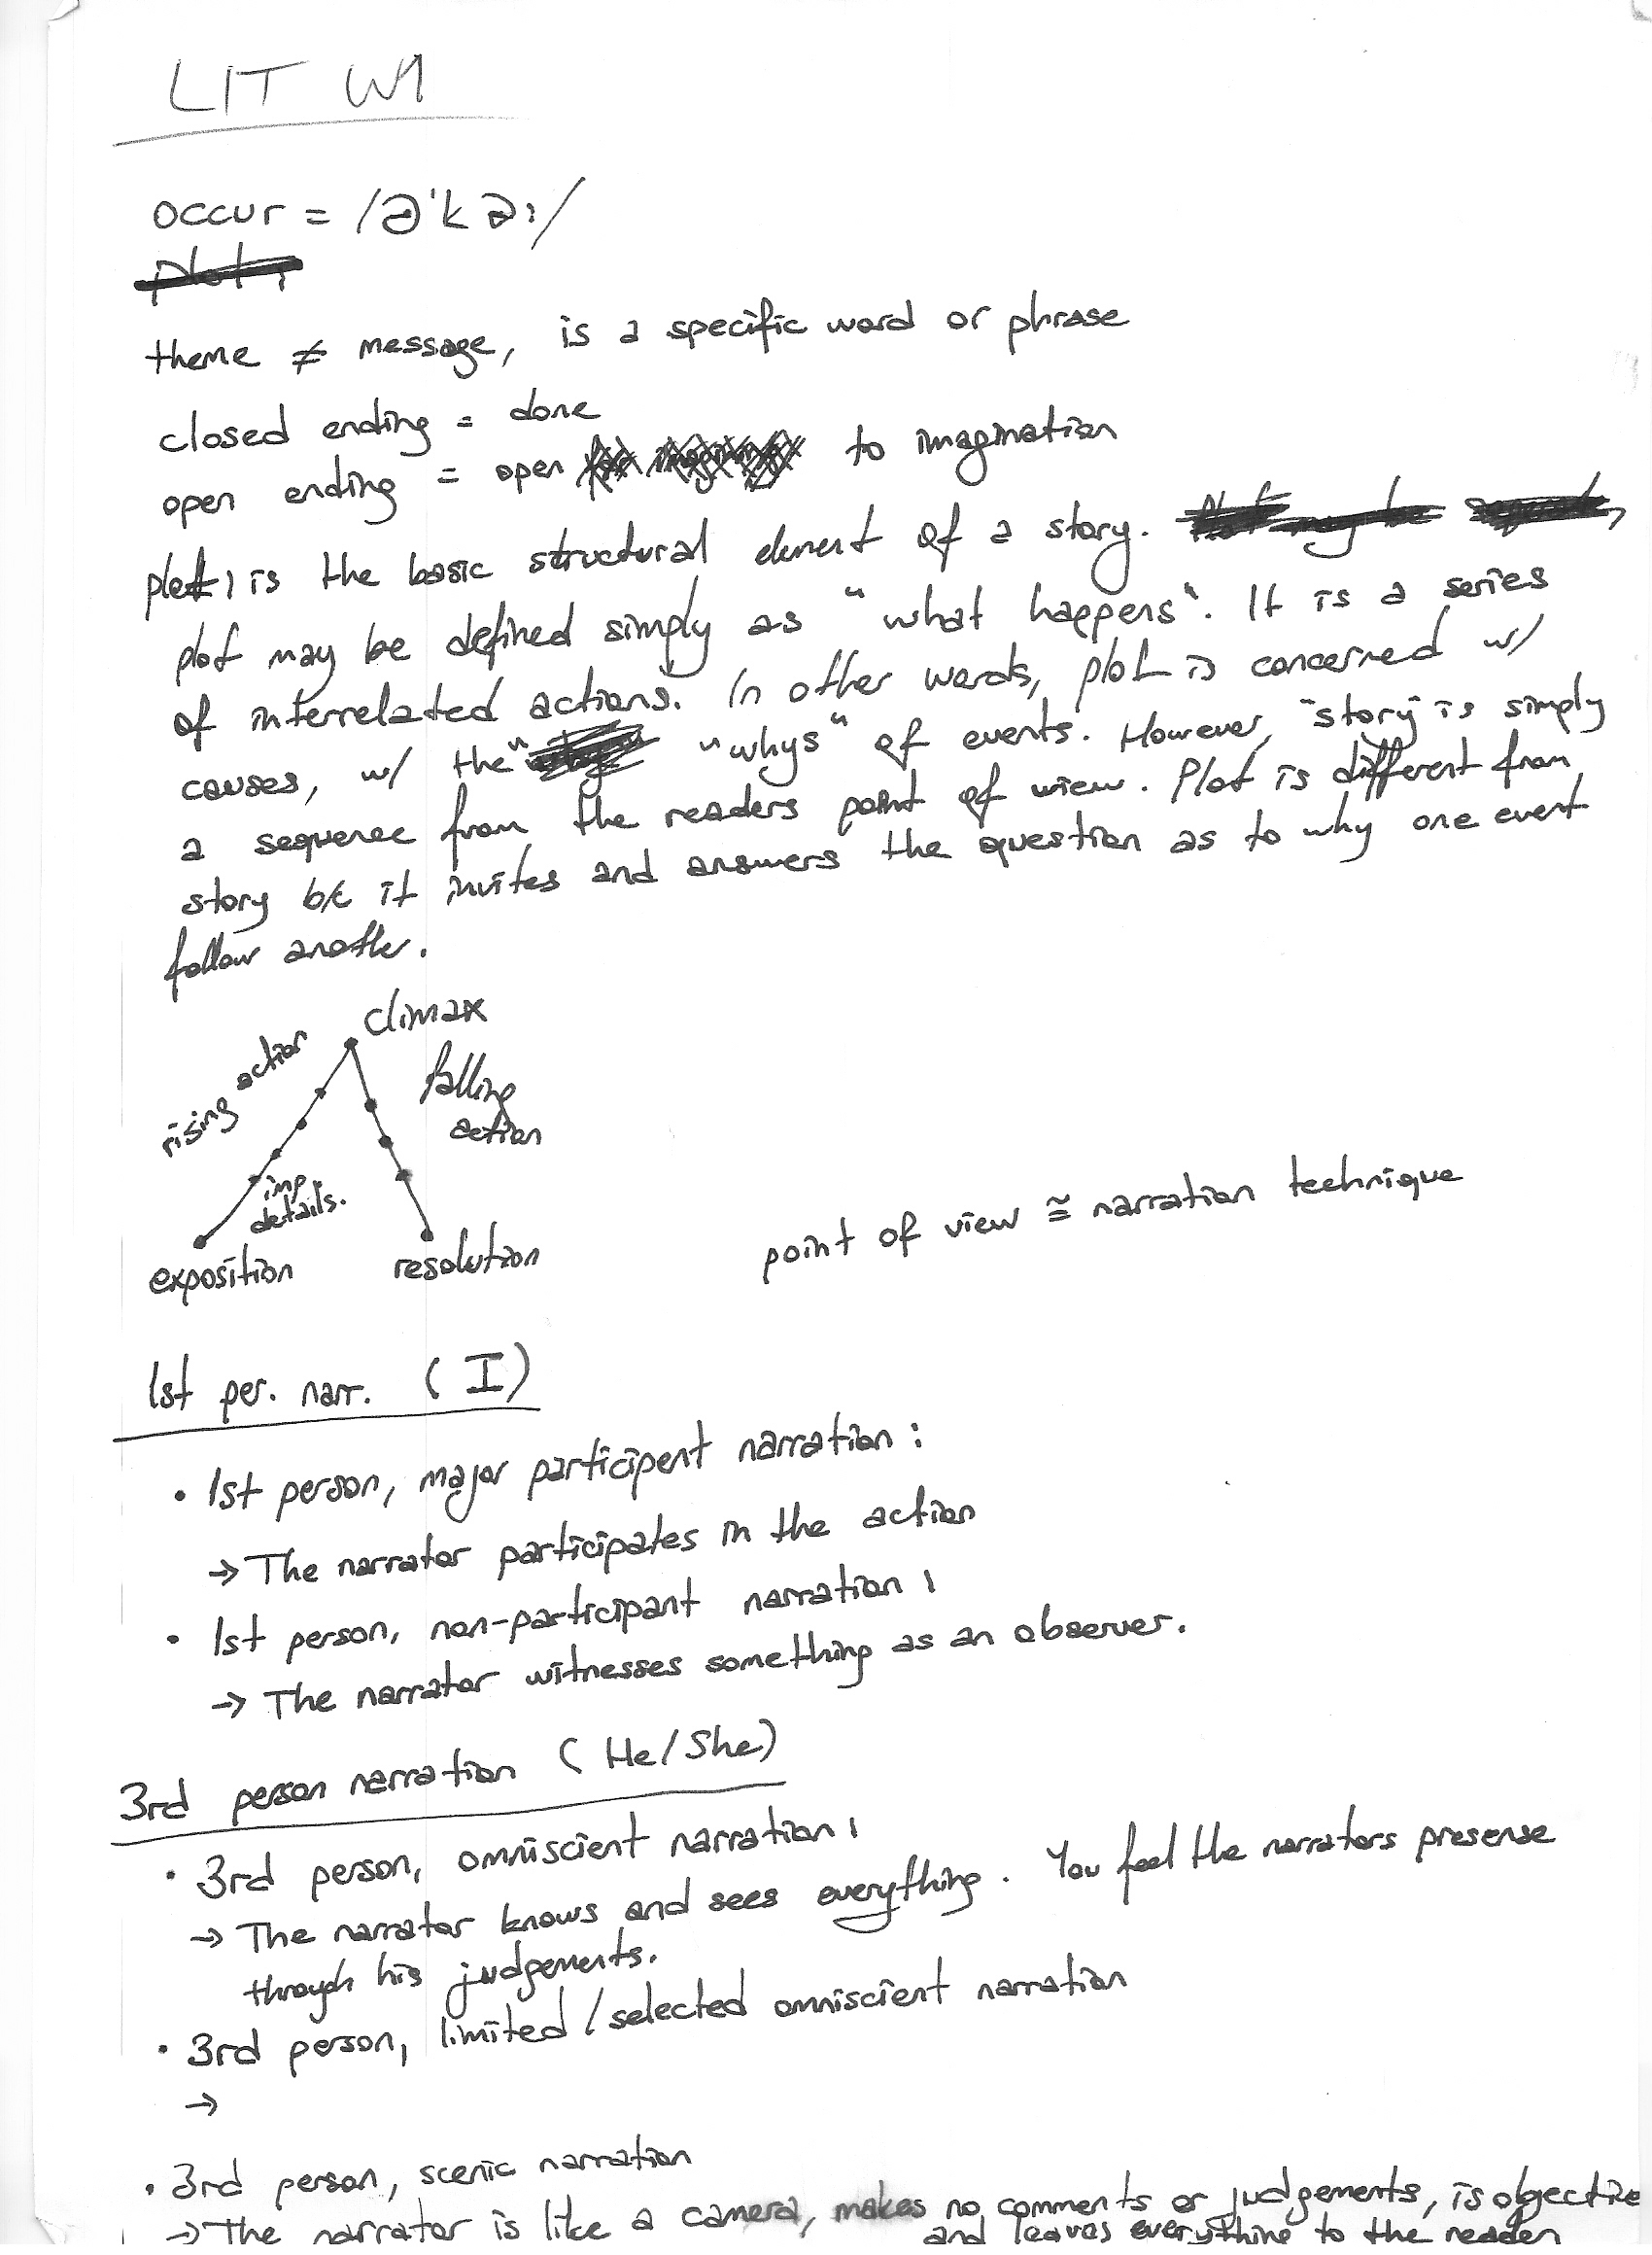 LIT W1
occur = /ə'kəː/
theme ≠ message, is a specific word or phrase
closed ending = done
open ending = open to imagination
plot; is the basic structural element of a story.
plot may be defined simply as "what happens". It is a series
of interrelated actions. In other words, plot is concerned w/
causes, w/ the "whys" of events. However, "story" is simply
a sequence from the readers point of view. Plot is different from
story b/c it invites and answers the question as to why one event
follow another.
climax
rising action
falling
action
imp.
details.
exposition
resolution
point of view ≅ narration technique
1st per. narr. (I)
• 1st person, major participent narration:
→ The narrator participates in the action
• 1st person, non-participant narration;
→ The narrator witnesses something as an observer.
3rd person narration (He/She)
• 3rd person, omniscient narration;
→ The narrator knows and sees everything. You feel the narrators presense
through his judgements.
• 3rd person, limited/selected omniscient narration
→
• 3rd person, scenic narration
→ The narrator is like a camera, makes no comments or judgements, is objective
and leaves everything to the reader